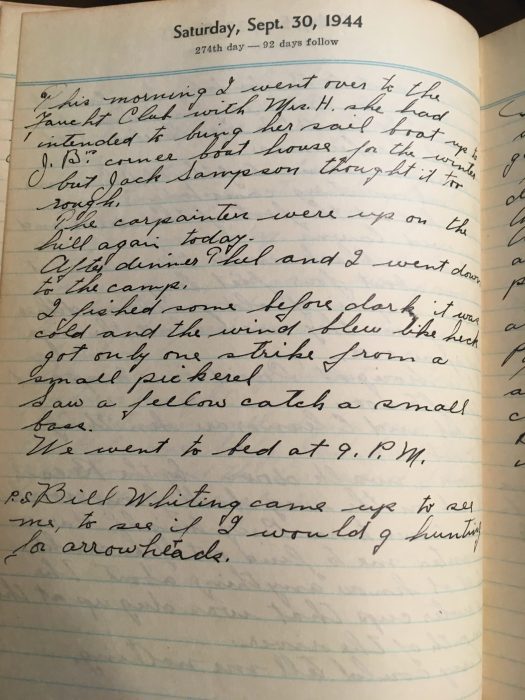 Saturday, Sept. 30, 1944
274th day — 92 days follow
This morning I went over to the
Yaucht Club with Mrs. H. she had
intended to bring her sail boat up to
J. B's corner boat house for the winter
but Jack Sampson thought it too
rough.
The carpainter were up on the
hill again today.
After dinner Phel and I went down
to the camp.
I fished some before dark, it was
cold and the wind blew like heck
got only one strike from a
small pickerel
Saw a fellow catch a small
bass.
We went to bed at 9. P.M.
P.S. Bill Whiting came up to see
me, to see if I would g hunting
for arrowheads.